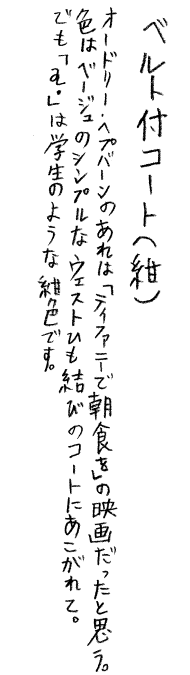 ベルト付コート(紺)
オードリー・ヘプバーンのあれは「ティファニーで朝食を」の映画だったと思う。
色はベージュのシンプルなウェストひも結びのコートにあこがれて。
でも「む・」は学生のような紺色です。